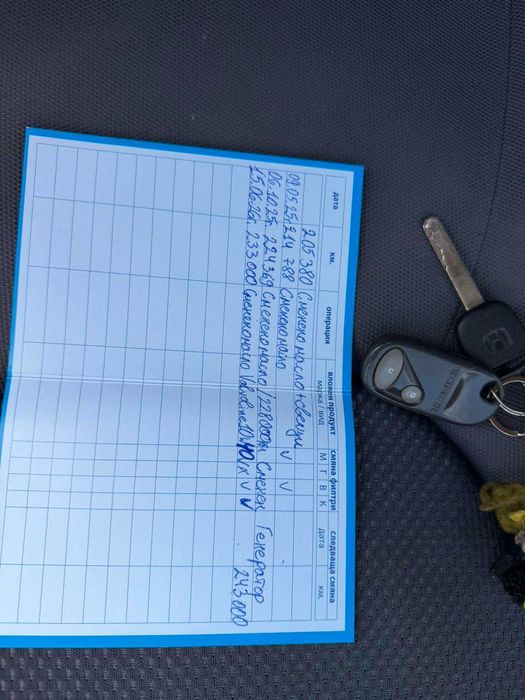 дата км. операция вложен продукт марка / вид смяна филтри М Г В К следваща смяна дата км.
205 380 Сменено масло + свещи
09.05.25г. 214 788 Сменено масло V V
06.10.25г. 224 369 Сменено масло / 228000км Сменен Генератор
15.06.26г. 233 000 Сменено масло 10W40 V V 243 000